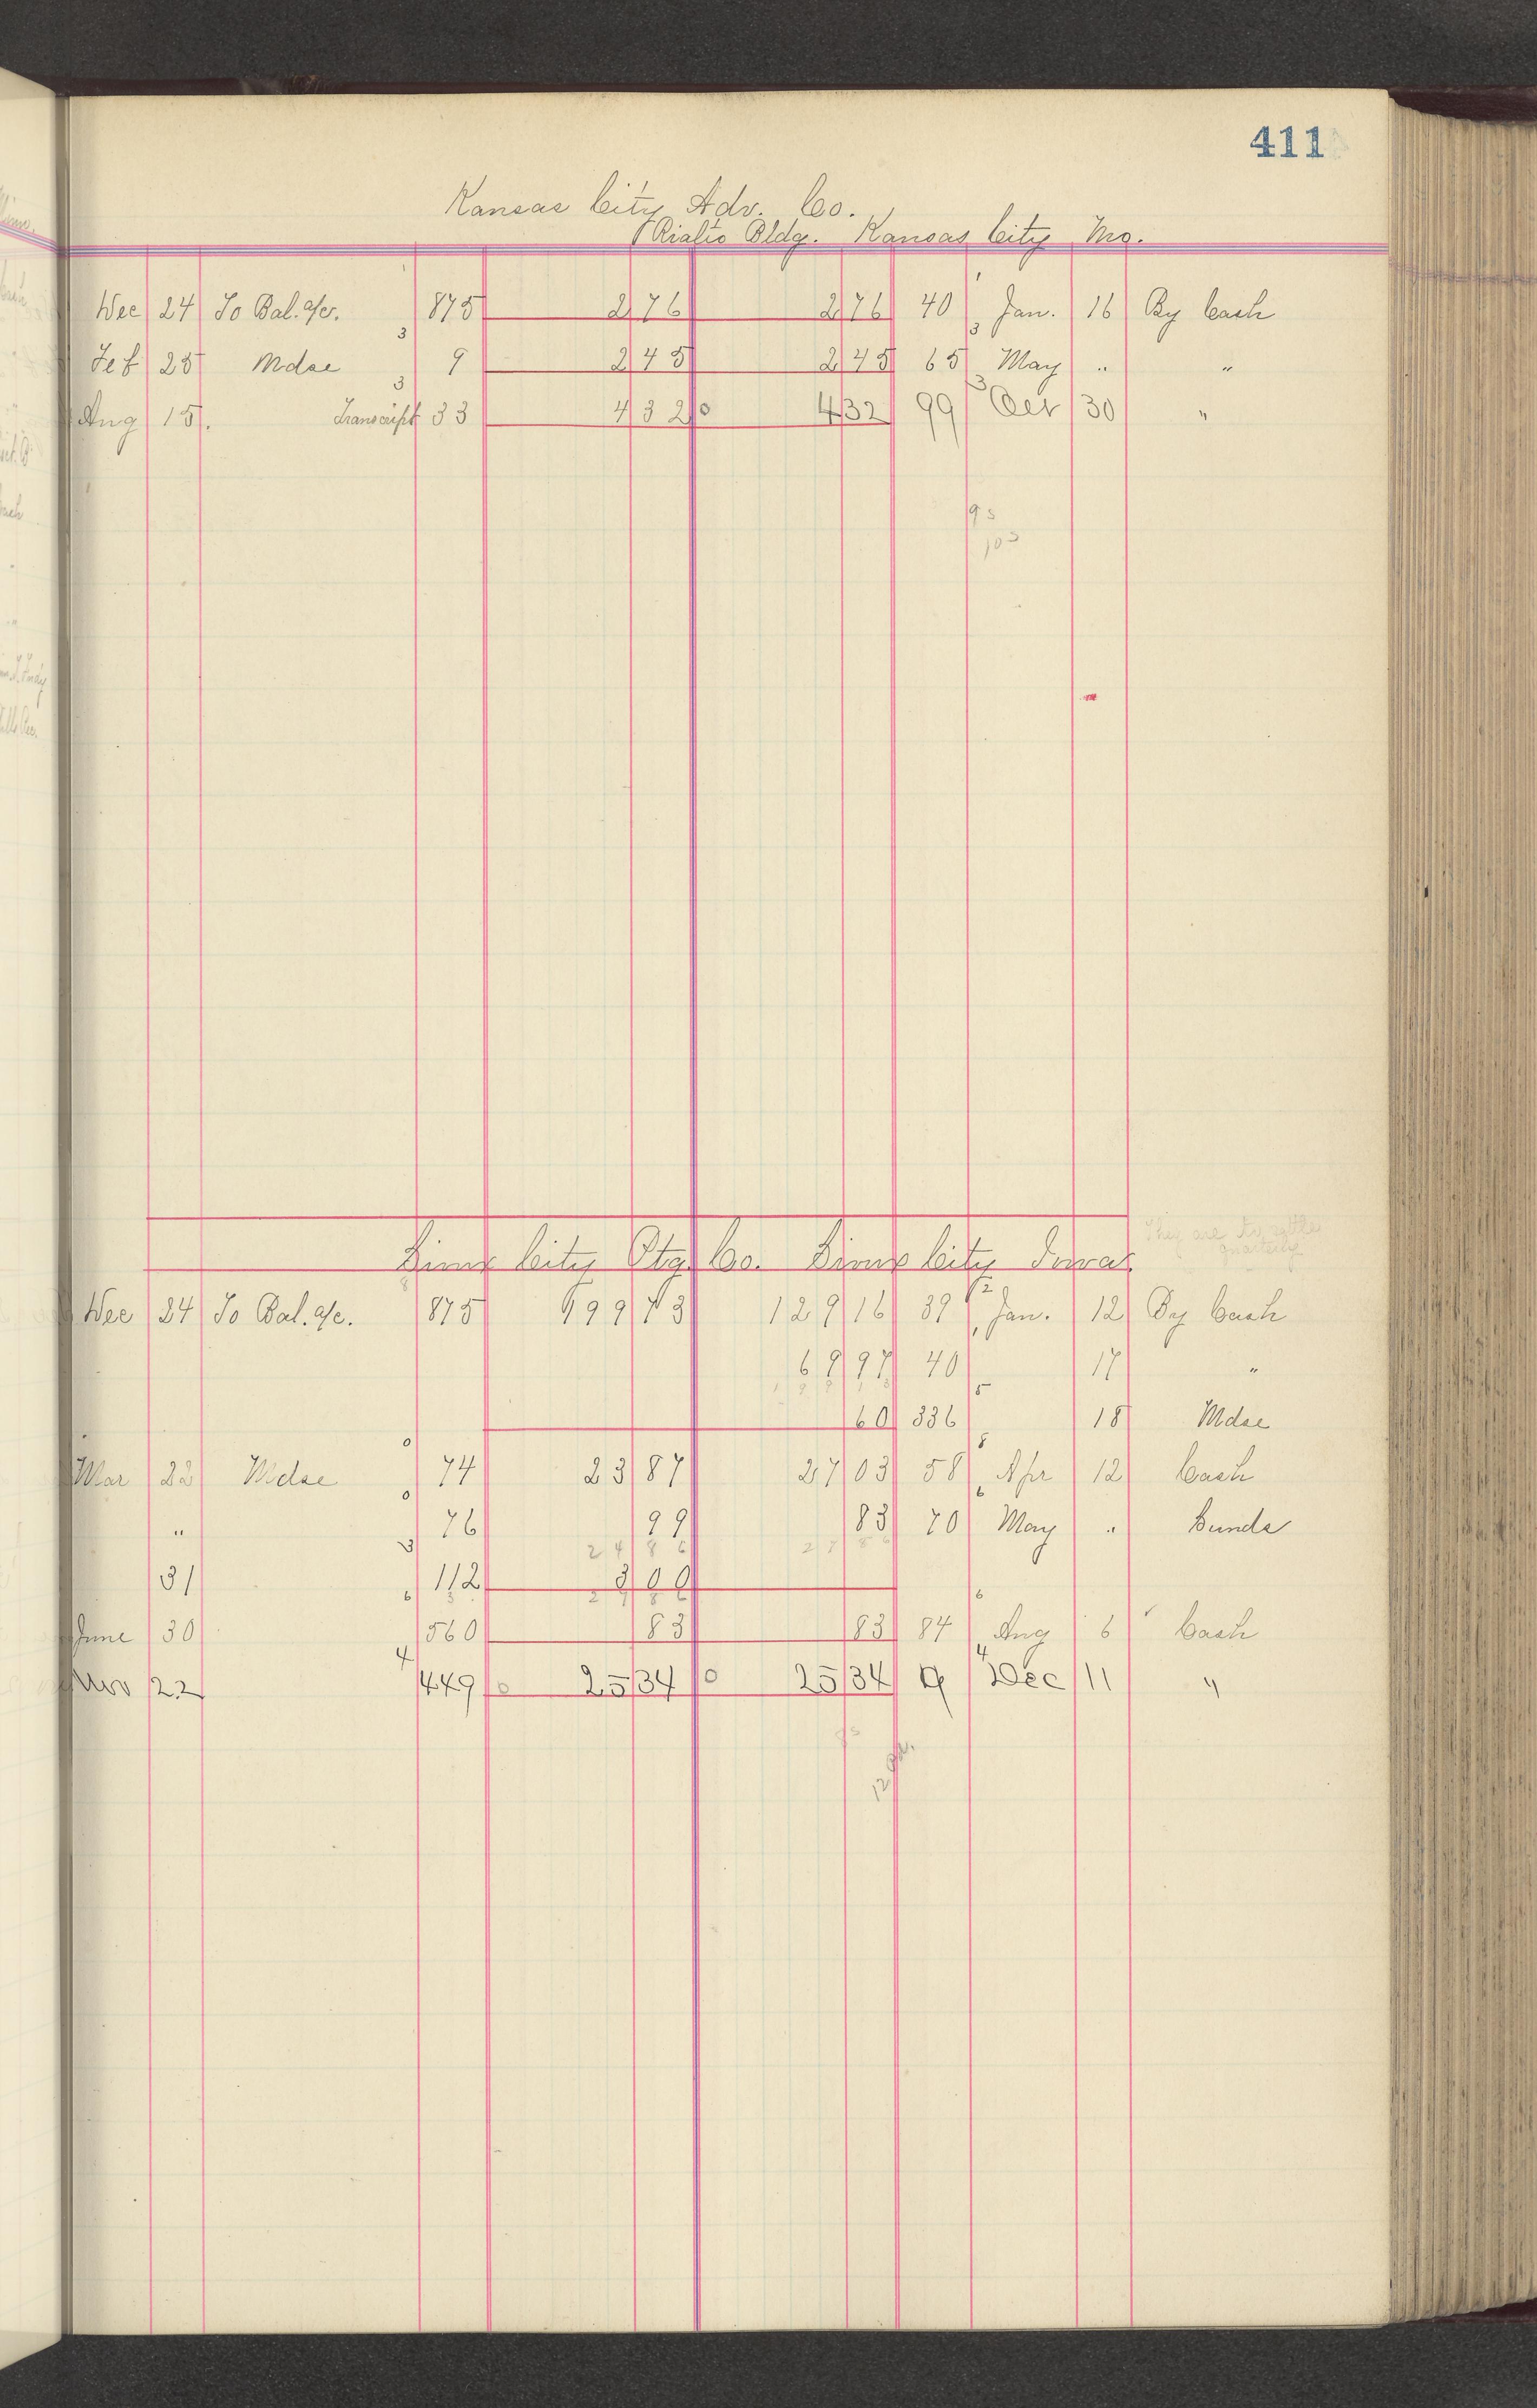 411
Kansas City Adv. Co.
Rialto Bldg. Kansas City Mo.
Dec 24 To Bal. a/c. 3 875 2 76 2 76 40 3 Jan. 16 By Cash
Feb 25 Mdse 3 9 2 45 2 45 65 3 May " "
Aug 15. Transcript 33 4 32 0 4 32 99 Oct 30 "
93
103
Sioux City Ptg Co. Sioux City Iowa.
They are to settle
quarterly
Dec 24 To Bal. a/c. 875 199 73 129 16 39 12 Jan. 12 By Cash
69 97 40 17 "
60 336 5 18 Mdse
Mar 22 Mdse 0 74 23 87 27 03 58 8 Apr 12 Cash
" 0 76 99 83 70 6 May " Sunds
24 86 27 86
31 3 112 3 00
June 30 6 560 83 83 84 6 Aug 6 Cash
Nov 22 4 449 0 25 34 0 25 34 9 4 Dec 11 "